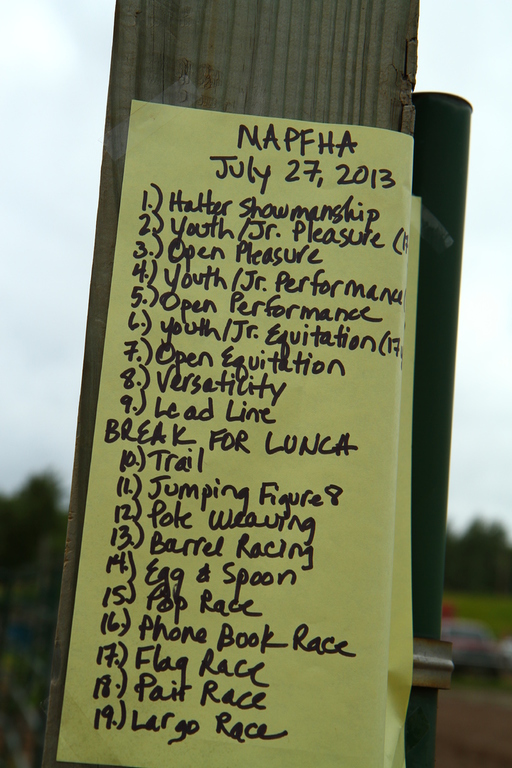 NAPFHA
July 27, 2013
1.) Halter Showmanship
2.) Youth/Jr. Pleasure (1
3.) Open Pleasure
4.) Youth/Jr. Performance
5.) Open Performance
6.) Youth/Jr. Equitation (17
7.) Open Equitation
8.) Versatility
9.) Lead Line
BREAK FOR LUNCH
10.) Trail
11.) Jumping Figure 8
12.) Pole Weaving
13.) Barrel Racing
14.) Egg & Spoon
15.) Pop Race
16.) Phone Book Race
17.) Flag Race
18.) Pair Race
19.) Largo Race